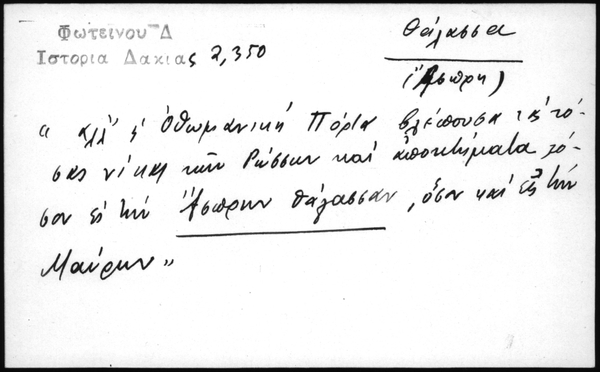 Φωτεινου Δ
Ιστορια Δακιας 2,350
Θάλασσα
(Άσπρη)
" ἀλλ' ἡ Ὀθωμανικὴ Πόρτα βλέπουσα τὰς τό-
σας νίκας τῶν Ρώσσων καὶ ἀποκτήματα τό-
σον εἰς τὴν Ἄσπρην θάλασσαν, ὅσον καὶ εἰς τὴν
Μαύρην "